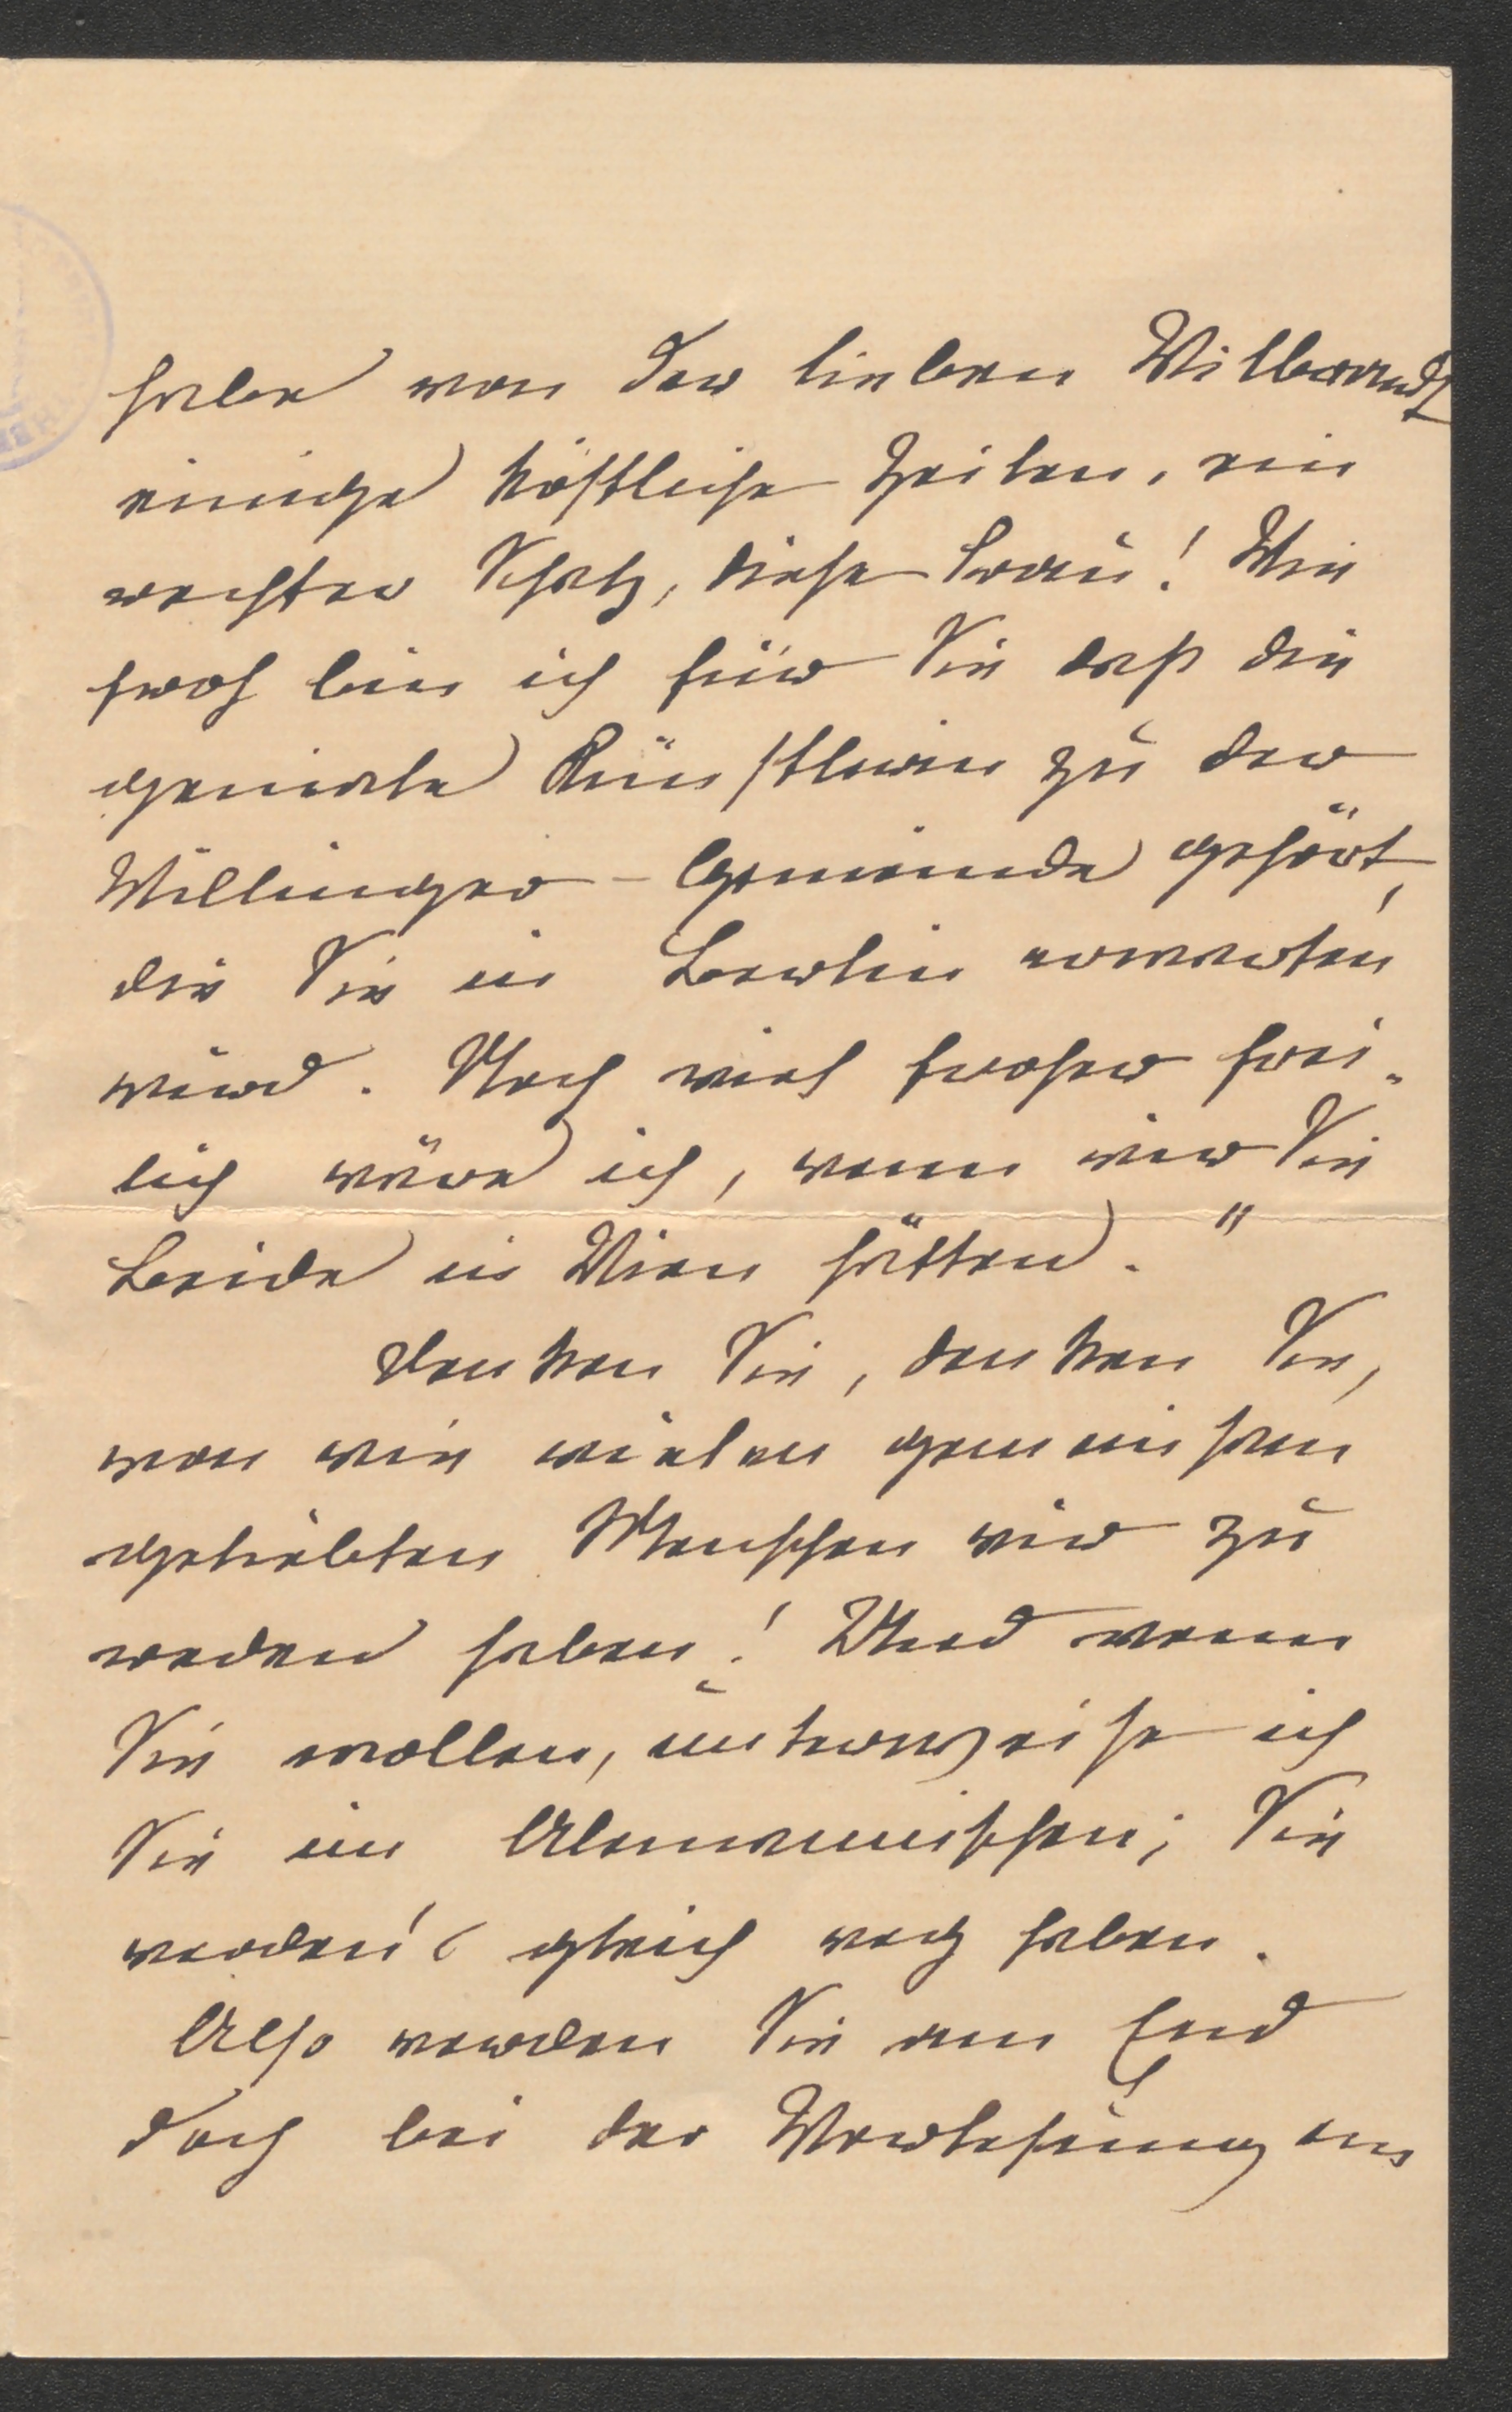 habe von der lieben Wilbrandt
einige köstliche Zeilen, ein
rechter Schatz, diese Frau! Wie
froh bin ich für Sie daß die
geniale Künstlerin zu der
Villinger-Gemeinde gehört,
die Sie in Berlin erwarten
wird. Noch viel froher frei-
lich wäre ich, wenn wir Sie
Beide in Wien hätten."
Denken Sie, denken Sie,
von wie vielen gemeinsam
geliebten Menschen wir zu
reden haben! Und wenn
Sie wollen, unterweise ich
Sie im Alemannischen; Sie
werden's gleich weg haben.
Also werden Sie am End
doch bei der Vorlesung an